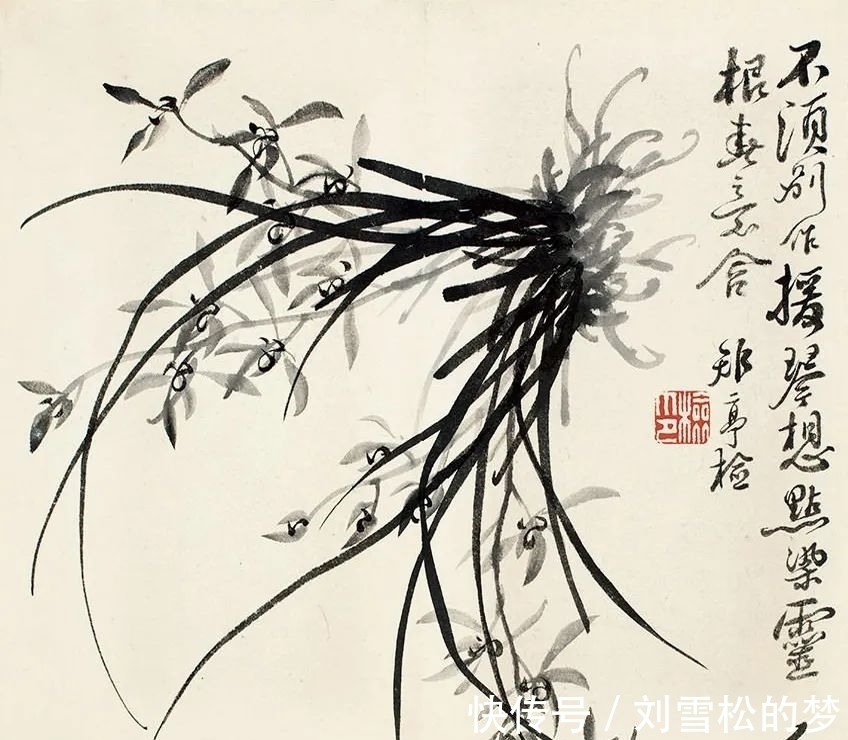 不須別作援琴想點染靈
根春意合
矩亭檢
快传号 / 刘雪松的梦